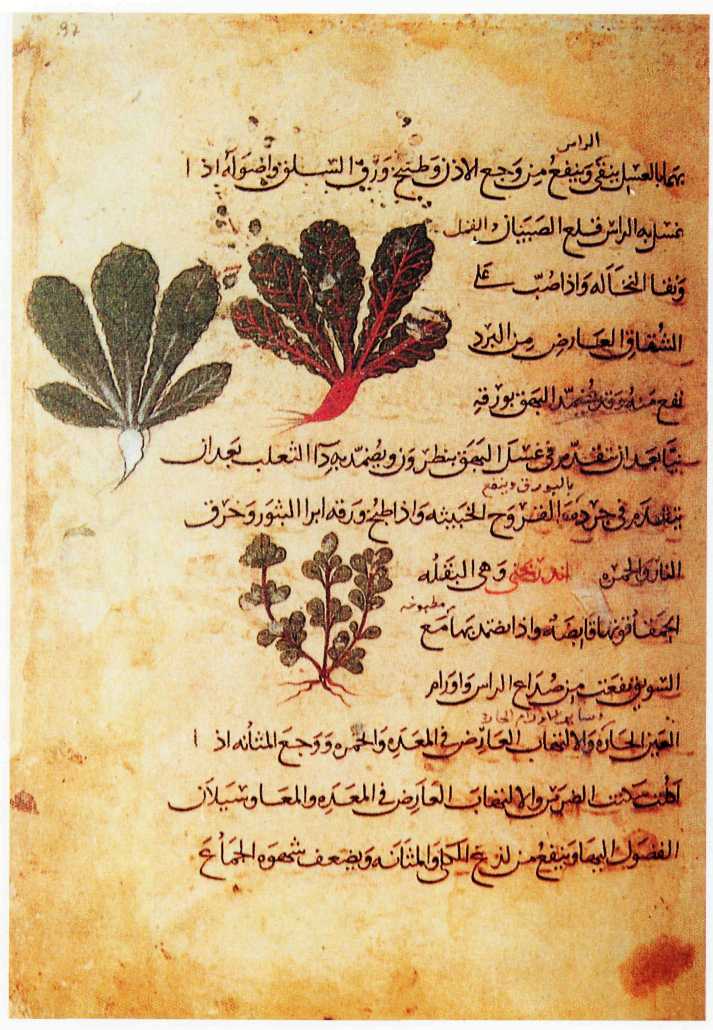 97
الراس
بهما بالعسل ينقى وينفع من وجع الاذن وطبيخ ورق السلق واصوله اذا
غسل به الراس قلع الصيبان والقمل
ونقا النخاله واذا صب على
الشقاق العارض من البرد
نفع منه وقد يضمد البهق بورقه
نيا بعد ان يتقدم فى غسل البهق بنطرون ويضمد به دآ الثعلب بعد ان
بالبورق وينفع
يتقدم فى القروح الخبيثه واذا طبخ ورقه ابرا البثور وحرق
النار والحمره وهى البقله
الحمقآ قوتها قابضه واذا تضمد بها مع
مطبوخه
السويق نفعت من صداع الراس واورام
العين الحاره والالتهاب العارض فى المعده والحمره ووجع المثانه اذا
اكلت سكنت الضرس والالتهاب العارض فى المعده والمعا وسيلان
الفضول اليها وينفع من لذع الكلى والمثانه ويضعف شهوه الجماع